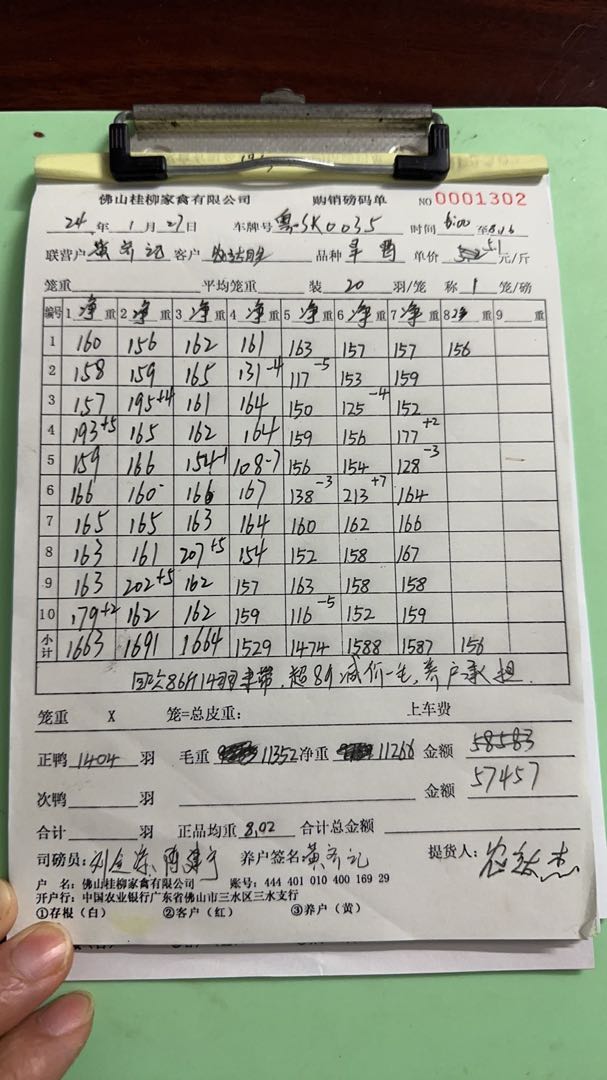 佛山桂柳家禽有限公司 购销磅码单 NO 0001302
24 年 1 月 27 日 车牌号 粤SK0035 时间 6:00 至 8:06
联营户 黄齐记 客户 品种 单价 5.1 元/斤
笼重 平均笼重 装 20 羽/笼 称 1 笼/磅
编号 1 净 重 2 净 重 3 净 重 4 净 重 5 净 重 6 净 重 7 净 重 8 净 重 9 重
1 160 156 162 161 163 157 157 156
2 158 159 165 131-4 117-5 153 159
3 157 195+4 161 164 150 125-4 152
4 193+5 165 162 164 159 156 177+2
5 159 166 154-1 108-7 156 154 128-3
6 166 160 166 167 138-3 213+7 164
7 165 165 163 164 160 162 166
8 163 161 207+5 154 152 158 167
9 163 202+5 162 157 163 158 158
10 179+2 162 162 159 116-5 152 159
小计 1663 1691 1664 1529 1474 1588 1587 156
回吃86斤14羽未带,超8斤减价一毛,养户承担.
笼重 X 笼=总皮重: 上车费
正鸭 1404 羽 毛重 11352 净重 11266 金额 58583
次鸭 羽 金额 57457
合计 羽 正品均重 8.02 合计总金额
司磅员: 养户签名 黄齐记 提货人:
户 名: 佛山桂柳家禽有限公司 账号: 444 401 010 400 169 29
开户行: 中国农业银行广东省佛山市三水区三水支行
①存根(白) ②客户(红) ③养户(黄)